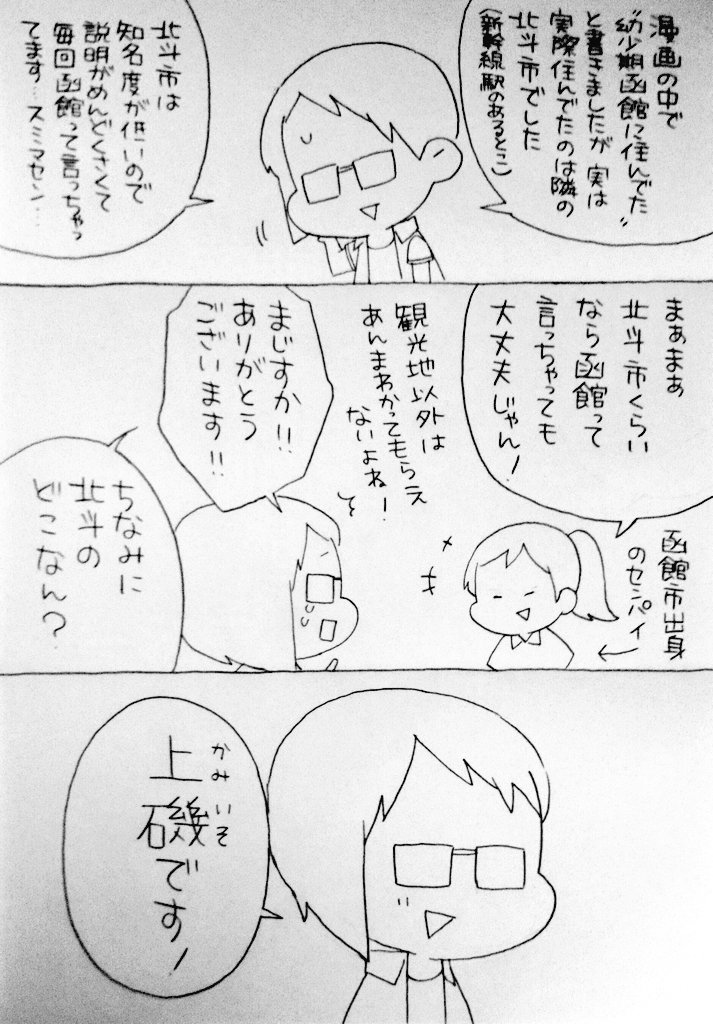 漫画の中で
"幼少期函館に住んでた"
と書きましたが実は
実際住んでたのは隣の
北斗市でした
(新幹線駅のあるとこ)
北斗市は
知名度が低いので
説明がめんどくさくて
毎回函館って言っちゃっ
てます…スミマセン…
まぁまぁ
北斗市くらい
なら函館って
言っちゃっても
大丈夫じゃん!
函館市出身
のセンパイ
観光地以外は
あんまわかってもらえ
ないよね!
まじすか!!
ありがとう
ございます!!
ちなみに
北斗の
どこなん?
上磯です!
かみいそ